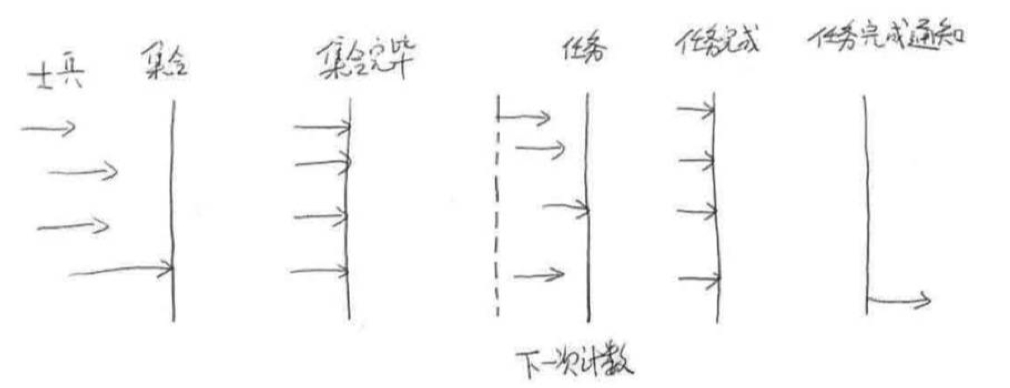 士兵 集合 集合完毕 任务 任务完成 任务完成通知
下一次计数